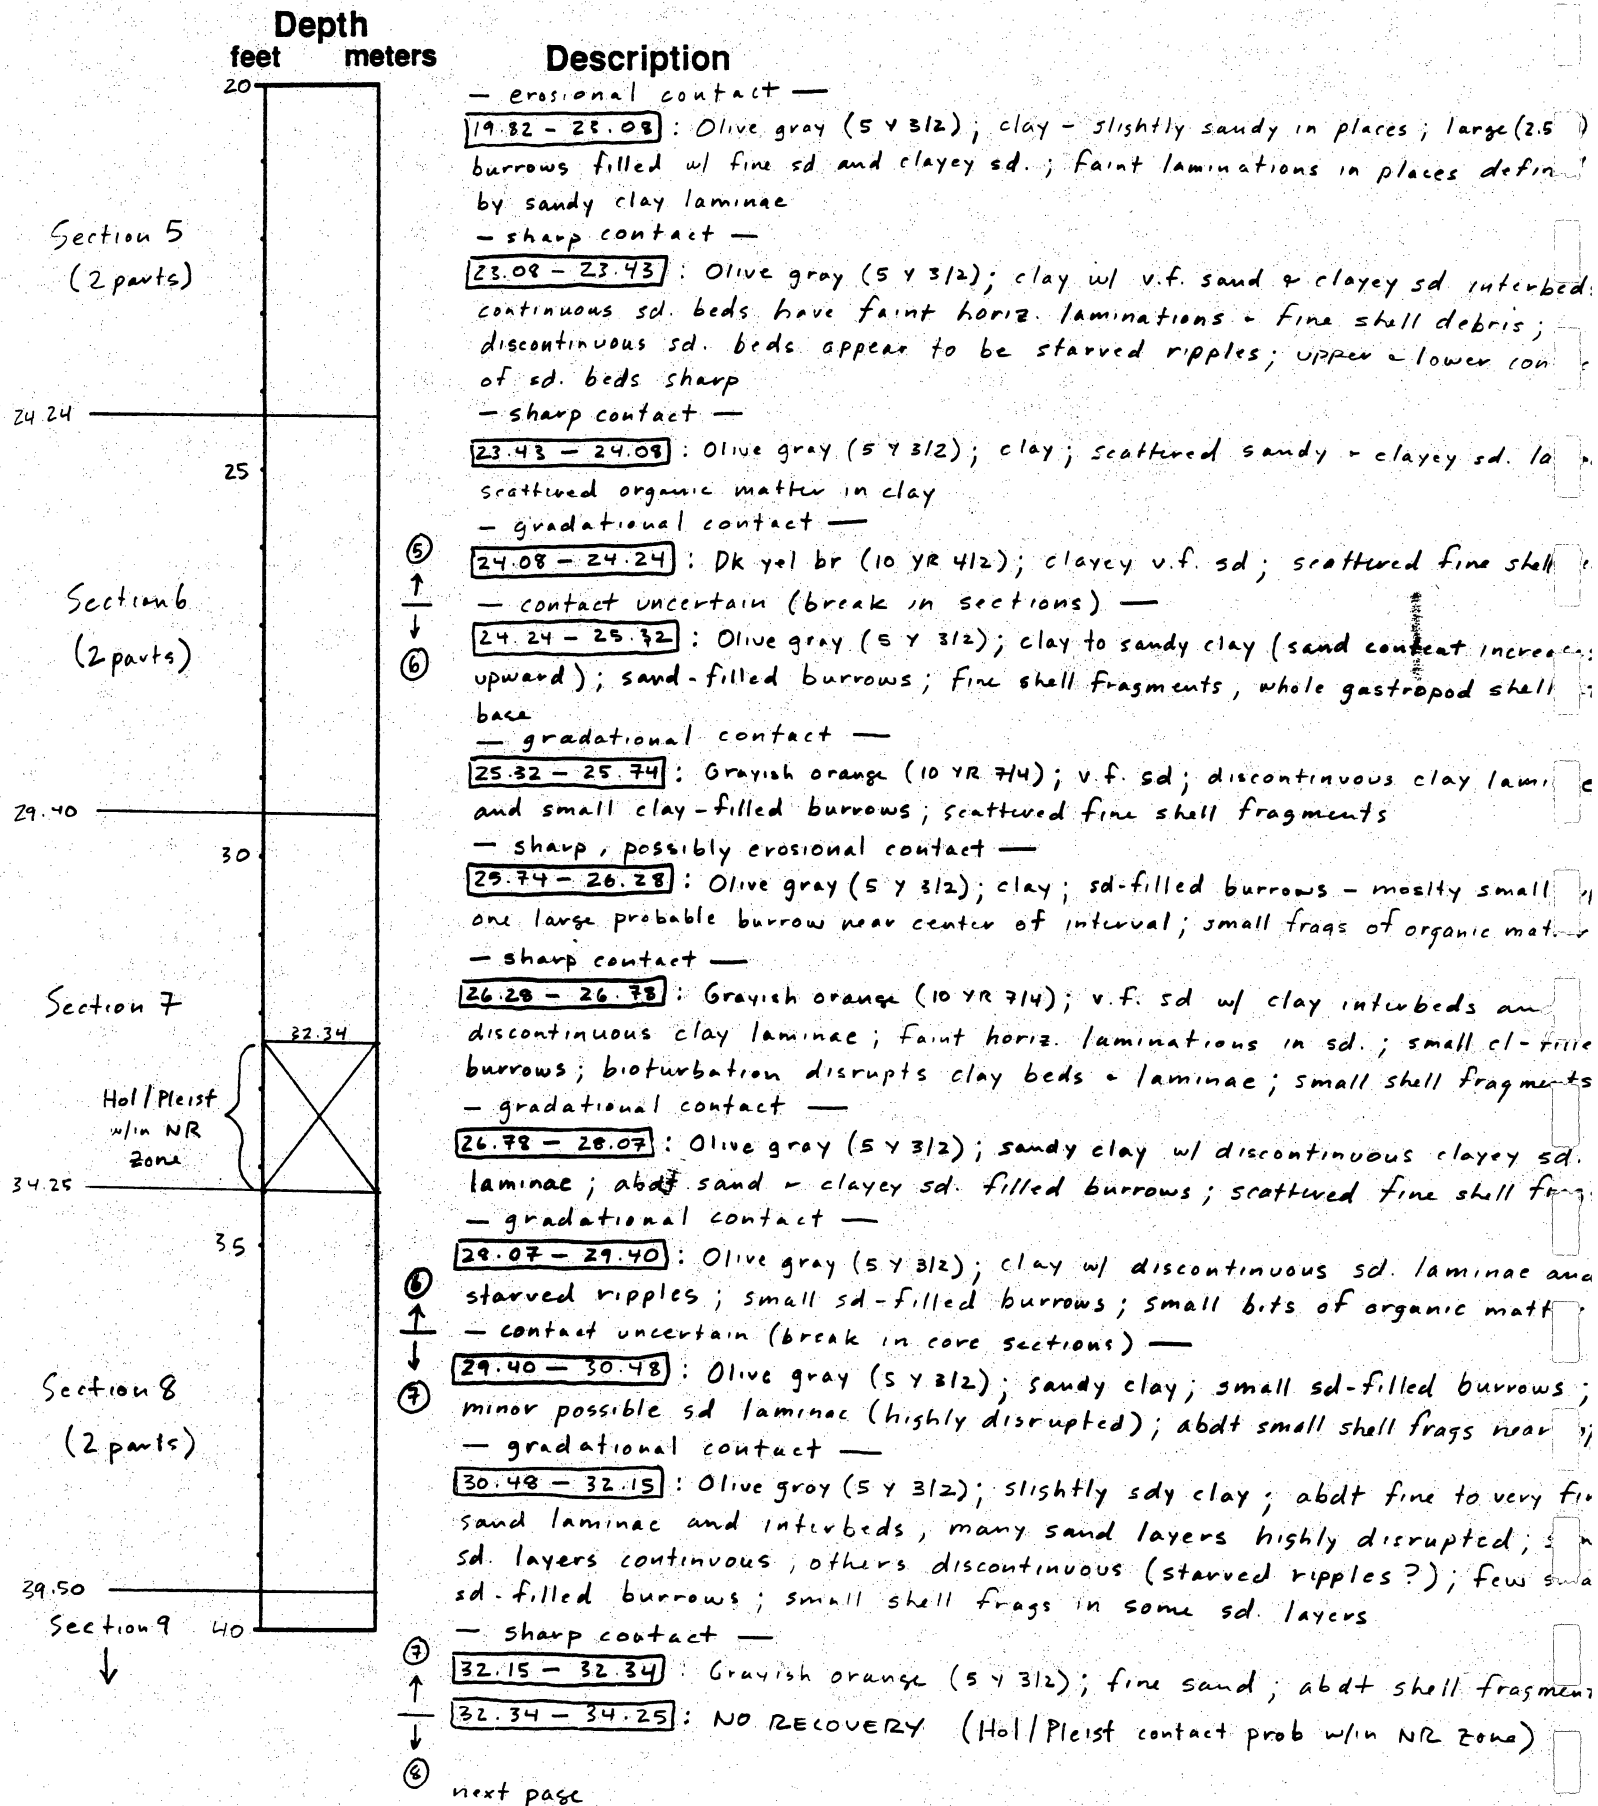 Depth
feet meters Description
20
— erosional contact —
19.82 – 23.08 : Olive gray (5 Y 3/2); clay – slightly sandy in places; large (2.5 )
burrows filled w/ fine sd and clayey sd.; faint laminations in places defin
by sandy clay laminae
— sharp contact —
Section 5
(2 parts)
23.08 – 23.43 : Olive gray (5 Y 3/2); clay w/ v.f. sand & clayey sd interbed
continuous sd. beds have faint horiz. laminations & fine shell debris;
discontinuous sd. beds appear to be starved ripples; upper & lower con
of sd. beds sharp
24.24
— sharp contact —
23.43 – 24.08 : Olive gray (5 Y 3/2); clay; scattered sandy & clayey sd. la
25
scattered organic matter in clay
— gradational contact —
⑤
24.08 – 24.24 : Dk yel br (10 YR 4/2); clayey v.f. sd; scattered fine shell
↑
— contact uncertain (break in sections) —
Section 6
(2 parts)
↓
⑥
24.24 – 25.32 : Olive gray (5 Y 3/2); clay to sandy clay (sand content increa
upward); sand-filled burrows; fine shell fragments, whole gastropod shell
base
— gradational contact —
25.32 – 25.74 : Grayish orange (10 YR 7/4); v.f. sd; discontinuous clay lami
and small clay-filled burrows; scattered fine shell fragments
29.40
— sharp, possibly erosional contact —
30
25.74 – 26.28 : Olive gray (5 Y 3/2); clay; sd-filled burrows – moslty small
one large probable burrow near center of interval; small frags of organic mat
— sharp contact —
Section 7
26.28 – 26.78 : Grayish orange (10 YR 7/4); v.f. sd w/ clay interbeds an
32.34
discontinuous clay laminae; faint horiz. laminations in sd.; small cl-fille
burrows; bioturbation disrupts clay beds & laminae; small shell fragments
Hol/Pleist
w/in NR
Zone
— gradational contact —
26.78 – 28.07 : Olive gray (5 Y 3/2); sandy clay w/ discontinuous clayey sd.
34.25
laminae; abdt sand & clayey sd. filled burrows; scattered fine shell frag
— gradational contact —
35
28.07 – 29.40 : Olive gray (5 Y 3/2); clay w/ discontinuous sd. laminae and
⑥
starved ripples; small sd-filled burrows; small bits of organic matt
↑
— contact uncertain (break in core sections) —
↓
29.40 – 30.48 : Olive gray (5 Y 3/2); sandy clay; small sd-filled burrows;
Section 8
(2 parts)
⑦
minor possible sd laminae (highly disrupted); abdt small shell frags near
— gradational contact —
30.48 – 32.15 : Olive gray (5 Y 3/2); slightly sdy clay; abdt fine to very fin
sand laminae and interbeds, many sand layers highly disrupted;
sd. layers continuous, others discontinuous (starved ripples?); few
39.50
sd-filled burrows; small shell frags in some sd. layers
Section 9 40
↓
— sharp contact —
⑦
32.15 – 32.34 : Grayish orange (5 Y 3/2); fine sand; abdt shell fragmen
↑
32.34 – 34.25 : NO RECOVERY (Hol/Pleist contact prob w/in NR Zone)
↓
⑧
next page